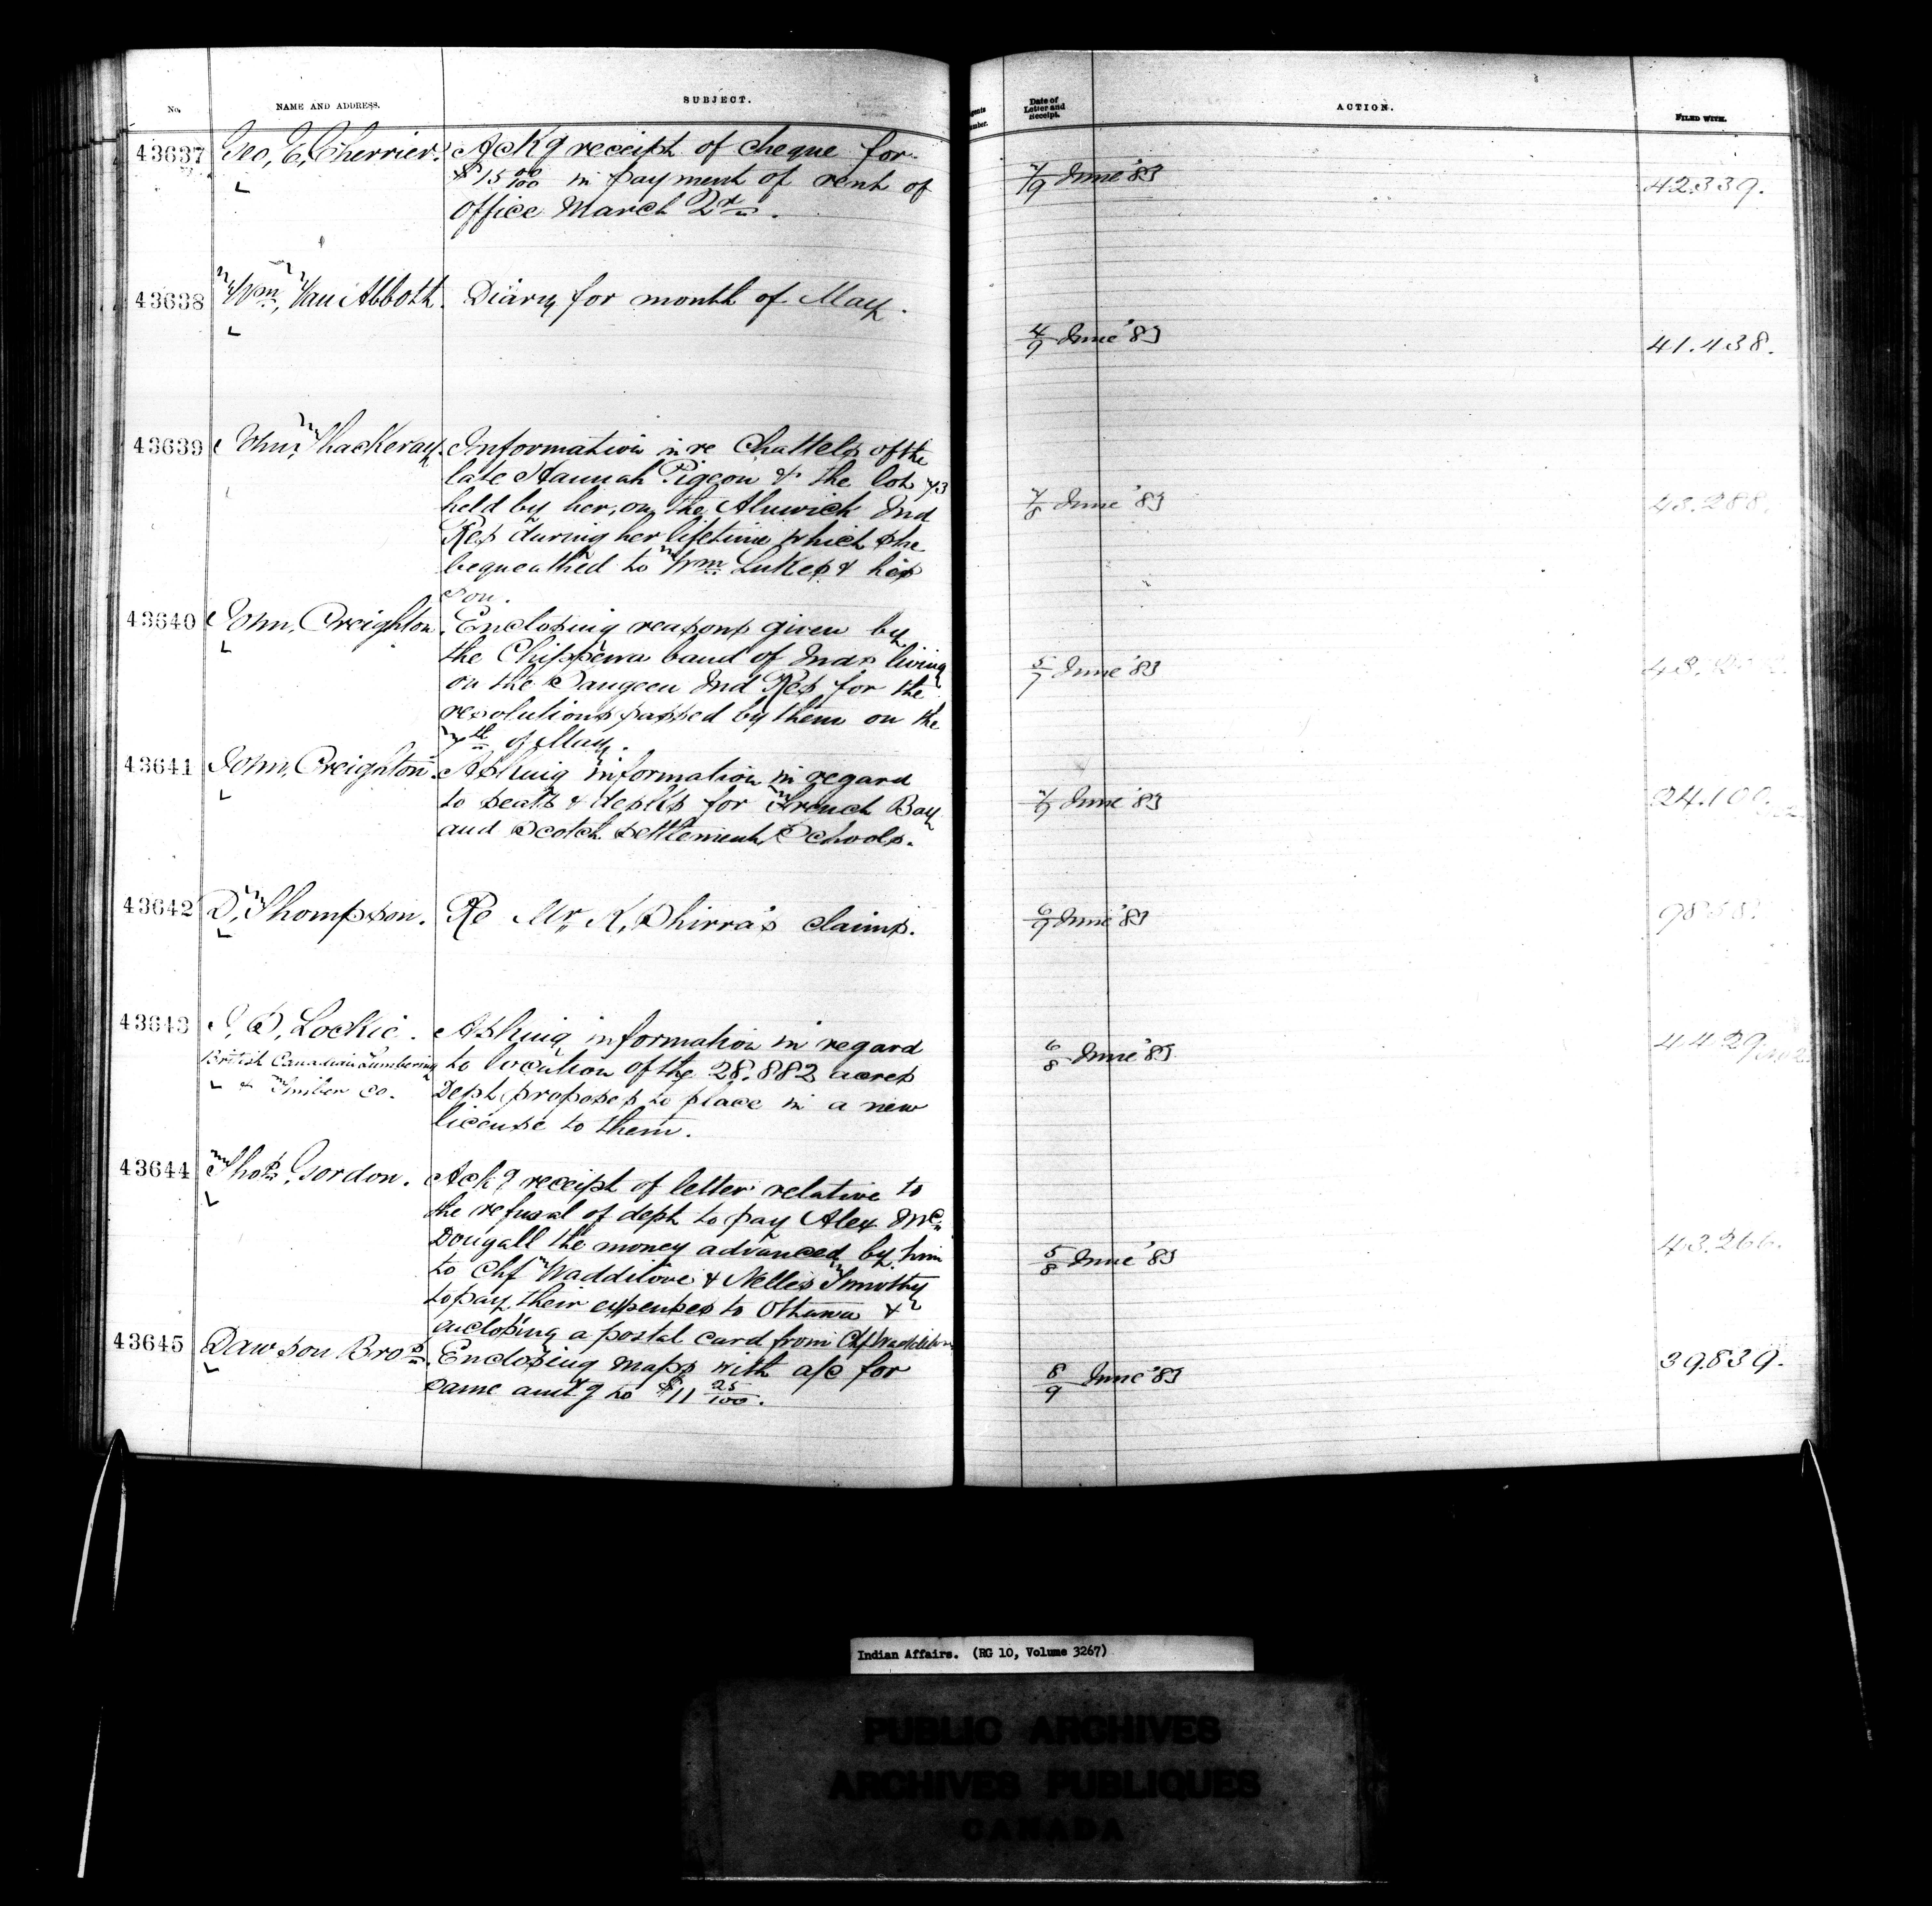 No. NAME AND ADDRESS. SUBJECT. Date of Letter and Receipt. ACTION. FILED WITH.
43637 Geo, E, Cherrier. Ackg receipt of cheque for 7/9 June '83 42.339.
$15 00/100 in payment of rent of
Office March 2r.
43638 Wm, Van Abbott. Diary for month of May. 4/9 June '83 41.438.
43639 John, Thackeray. Information in re Chattels of the 7/8 June '83 43.288.
late Hannah Pigeon & the lot
held by her, on the Alnwick Ind
Res during her lifetime which she
bequeathed to Wm Lukes & his
son.
43640 John, Creighton. Enclosing reasons given by 5/7 June '83
the Chippewa band of Inds living
on the Saugeen Ind Res for the
resolutions passed by them on the
7th of May.
43641 John, Creighton. Asking information in regard June '83 24.100.
to seats & desks for French Bay
and Scotch Settlement Schools.
43642 D, Thompson. Re Mr, K, Shirra's claims. 6/9 June '83
43643 J, S, Lockie. Asking information in regard 6/8 June '83
British Canadian Lumbering to location of the 28.882 acres
& Timber Co. Dept proposes to place in a new
license to them.
43644 Thos, Gordon. Ackg receipt of letter relative to 5/8 June '83 43.266.
the refusal of dept to pay Alex Mc
Dougall the money advanced by him
to Chf Waddilove & Nelles Timothy
to pay their expenses to Ottawa &
enclosing a postal card from Chf Waddilove
43645 Dawson Bros. Enclosing maps with a/c for 8/9 June '83 39.839.
same amt'g to $11 25/100.
Indian Affairs. (RG 10, Volume 3267)
PUBLIC ARCHIVES
ARCHIVES PUBLIQUES
CANADA